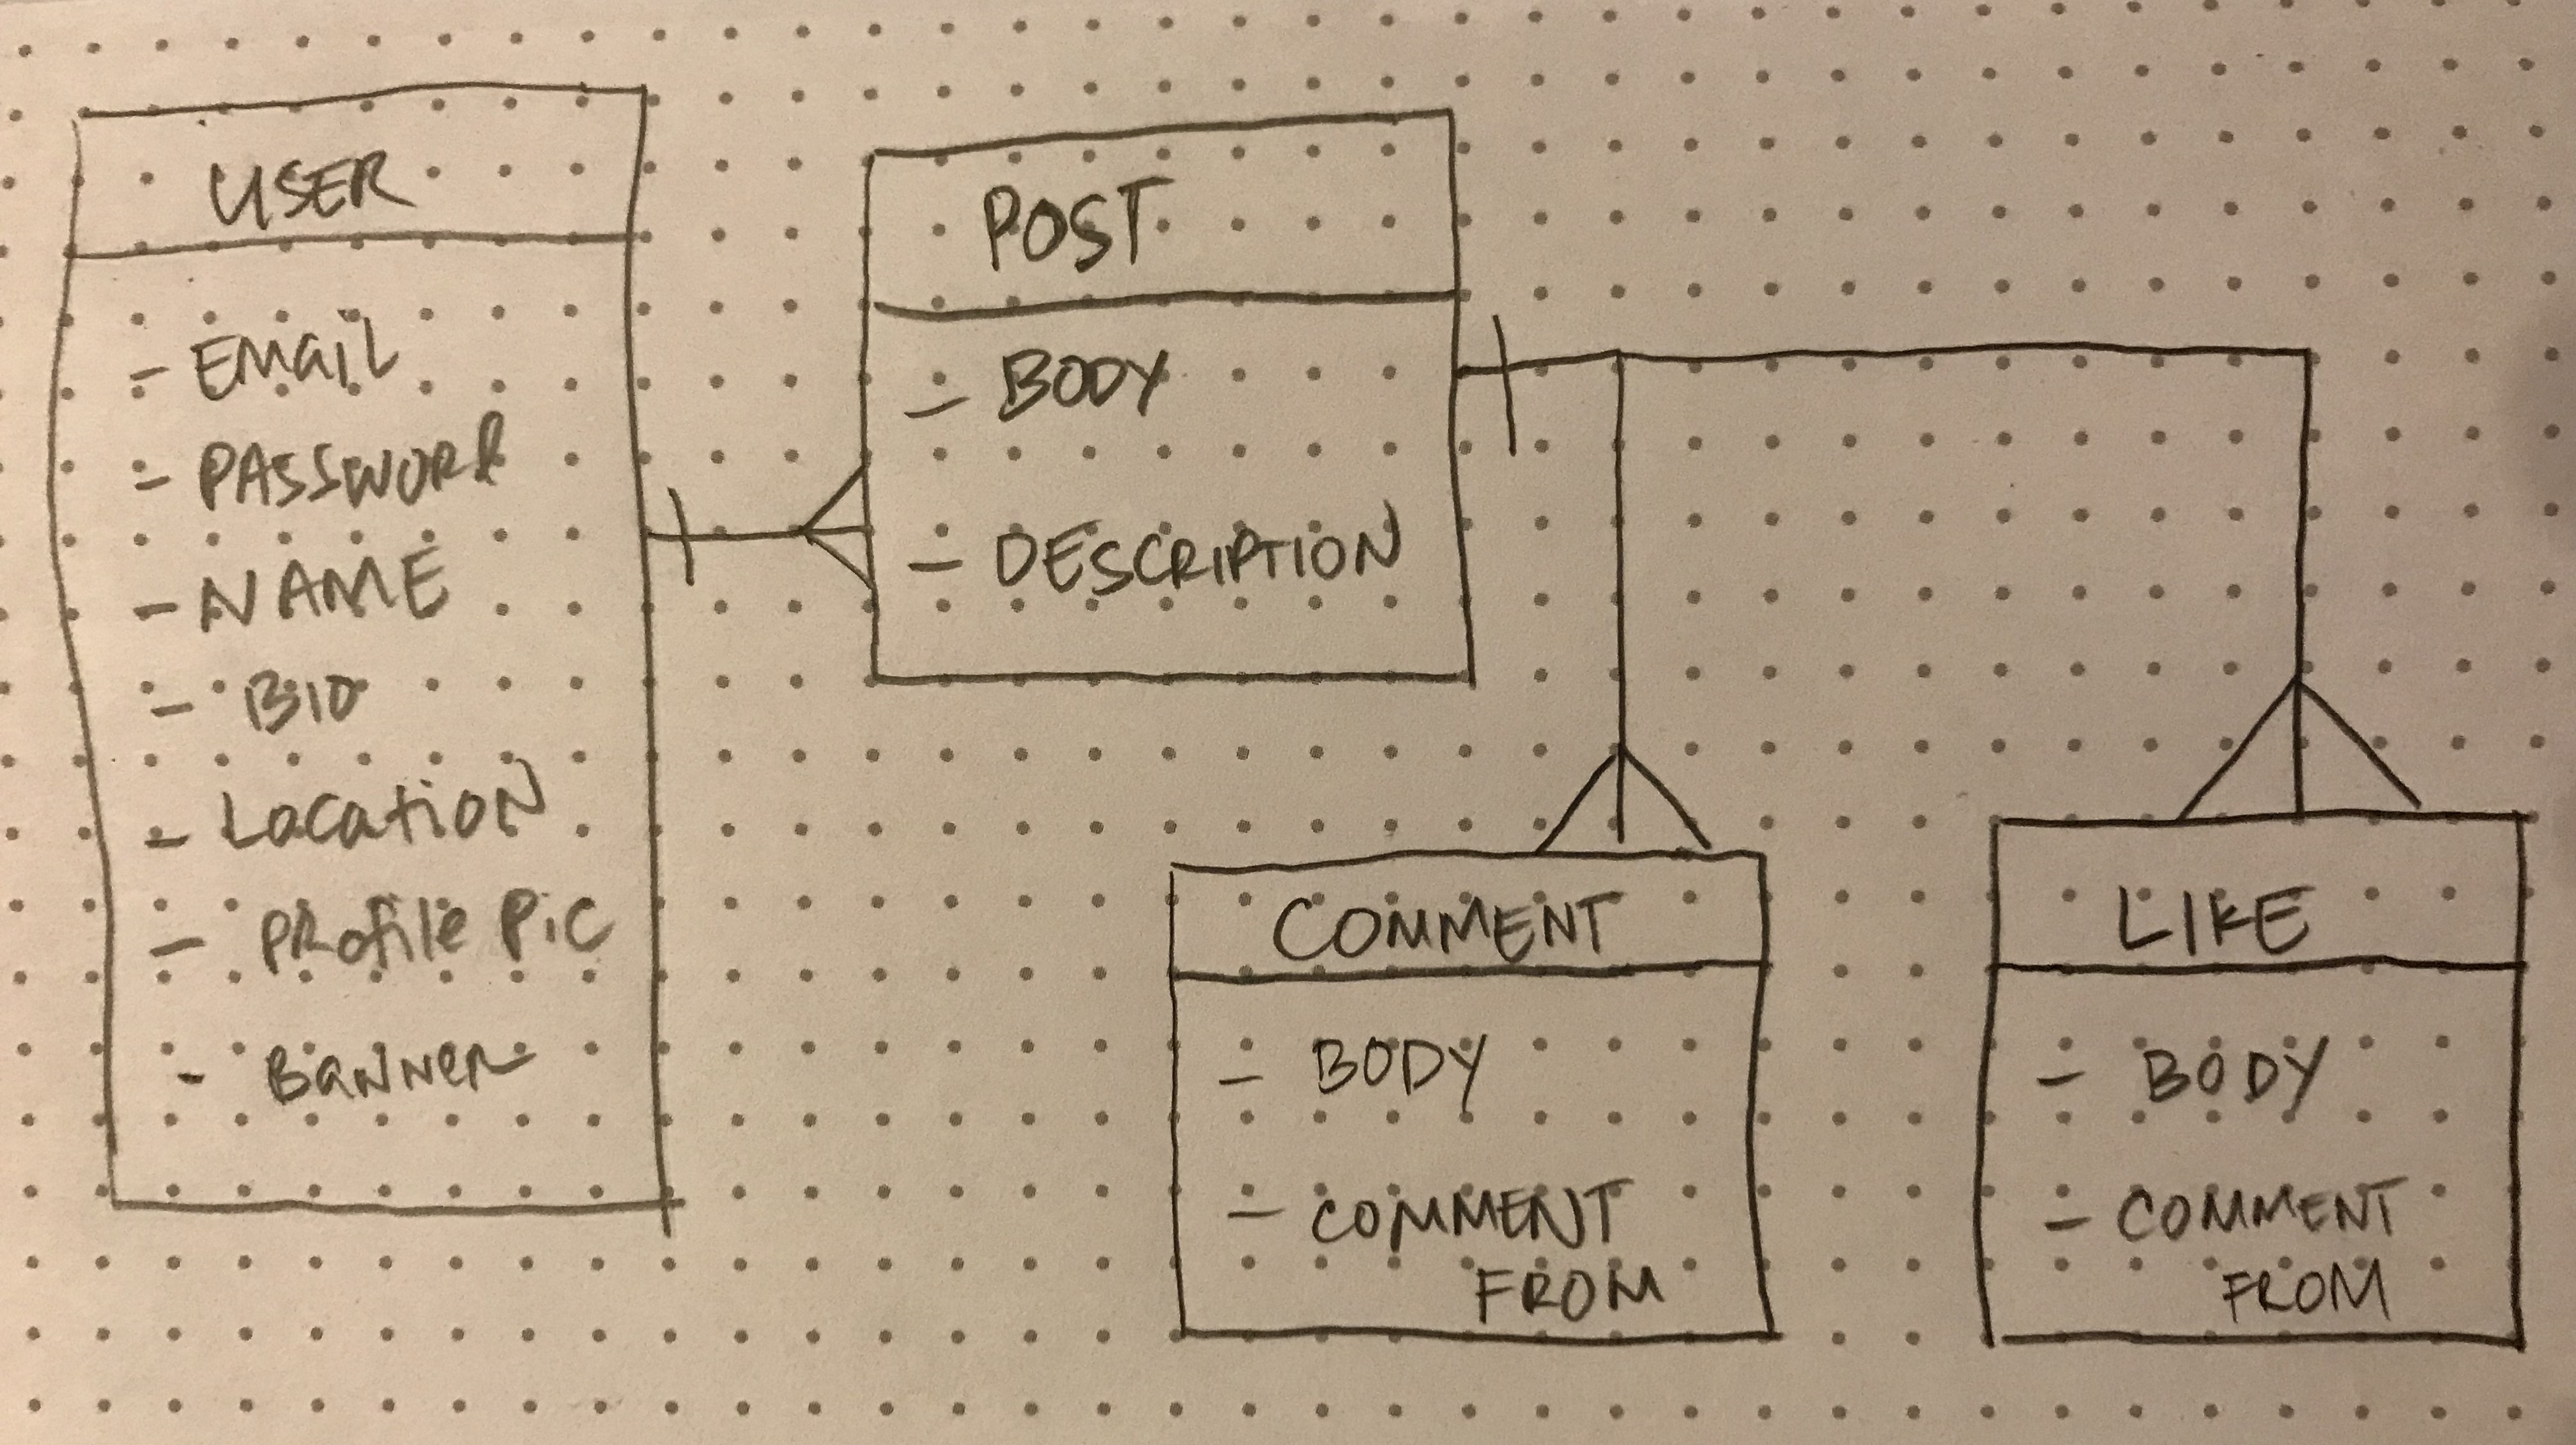 USER
- EMAIL
- PASSWORD
- NAME
- BIO
- LOCATION
- PROFILE PIC
- BANNER
POST
- BODY
- DESCRIPTION
COMMENT
- BODY
- COMMENT
FROM
LIKE
- BODY
- COMMENT
FROM